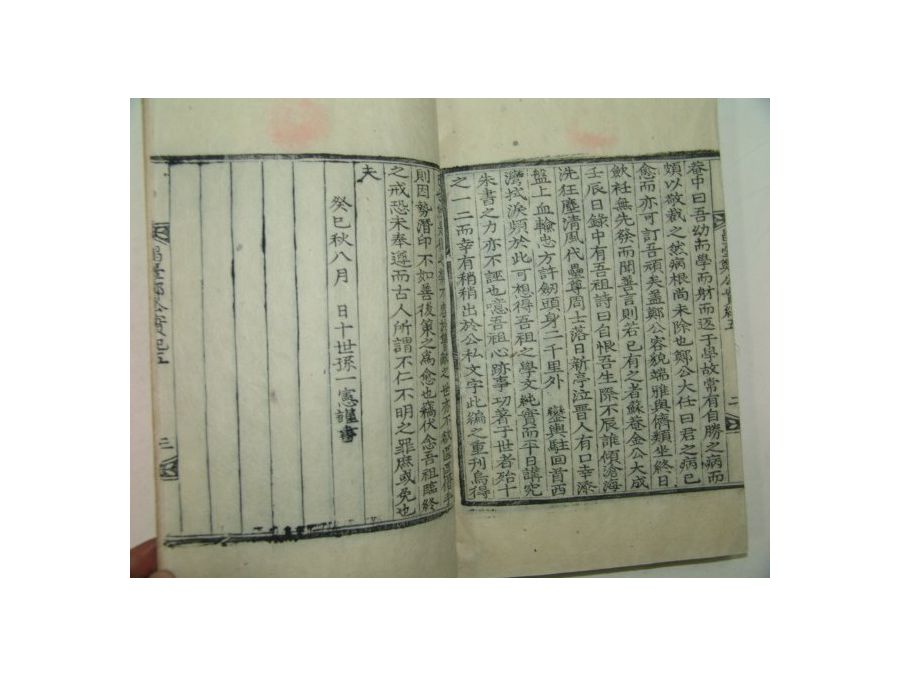 菴中曰吾幼而學而射而返于學故常有自勝之病而
頗以敬裁之然病根尚未除也鄭公大任曰君之病已
愈而亦可訂吾頑矣盖鄭公容貌端雅與儕類坐終日
歛衽無先發而聞善言則若已有之者蘇菴金公大成
壬辰日錄中有吾祖詩曰自恨吾生際不辰誰傾滄海
洗狂塵清風代壘尊周士落日新亭泣晋人有口幸添
盤上血輸忠方許劒頭身二千里外 鑾輿駐回首西
灣拭淚頻於此可想得吾祖之學文純實而平日講究
朱書之力亦不誣也噫吾祖心跡事功著于世者殆十
之一二而幸有稍稍出於公私文字此編之重刊烏得
則因勢潛印不如善後策之爲愈也竊伏念吾祖臨終
之戒恐未奉遵而古人所謂不仁不明之罪庶或免也
夫
癸巳秋八月 日十世孫一憲謹書
二
三